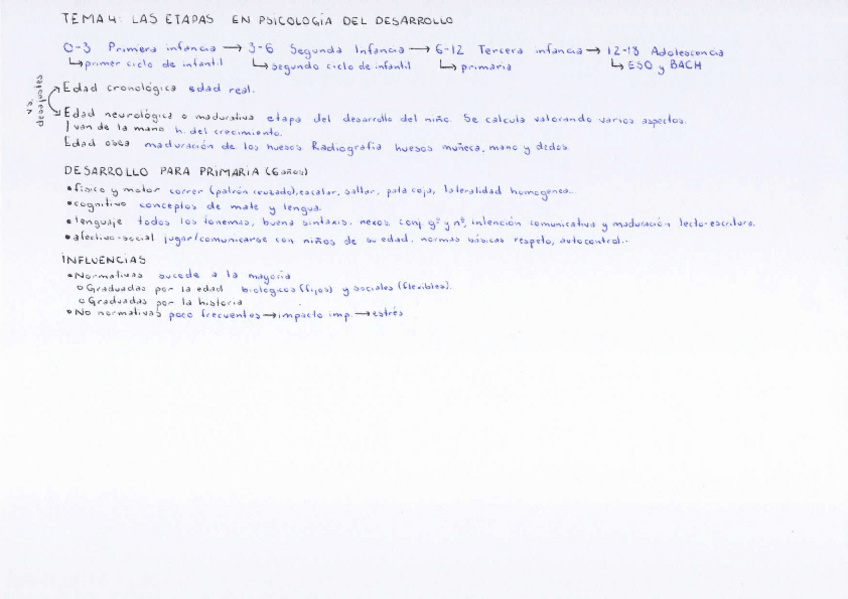 TEMA 4: LAS ETAPAS EN PSICOLOGÍA DEL DESARROLLO
0-3 Primera infancia → 3-6 Segunda Infancia → 6-12 Tercera infancia → 12-18 Adolescencia
↳ primer ciclo de infantil ↳ segundo ciclo de infantil ↳ primaria ↳ ESO y BACH
Edad cronológica edad real.
Edad neurológica o madurativa etapa del desarrollo del niño. Se calcula valorando varios aspectos.
| van de la mano h. del crecimiento.
Edad osea maduración de los huesos Radiografía huesos muñeca, mano y dedos.
DESARROLLO PARA PRIMARIA (6 años)
• físico y motor correr (patrón cruzado), escalar, saltar, pata coja, lateralidad homogenea...
• cognitivo conceptos de mate y lengua.
• lenguaje todos los fonemas, buena sintaxis, nexos, conj. gº y nº, intención comunicativa y maduración lecto-escritura.
• afectivo-social jugar/comunicarse con niños de su edad, normas básicas respeto, autocontrol...
INFLUENCIAS
• Normativas sucede a la mayoría
o Graduadas por la edad biológicos (fijos) y sociales (flexibles).
o Graduadas por la historia
• No normativas poco frecuentes → impacto imp. → estrés